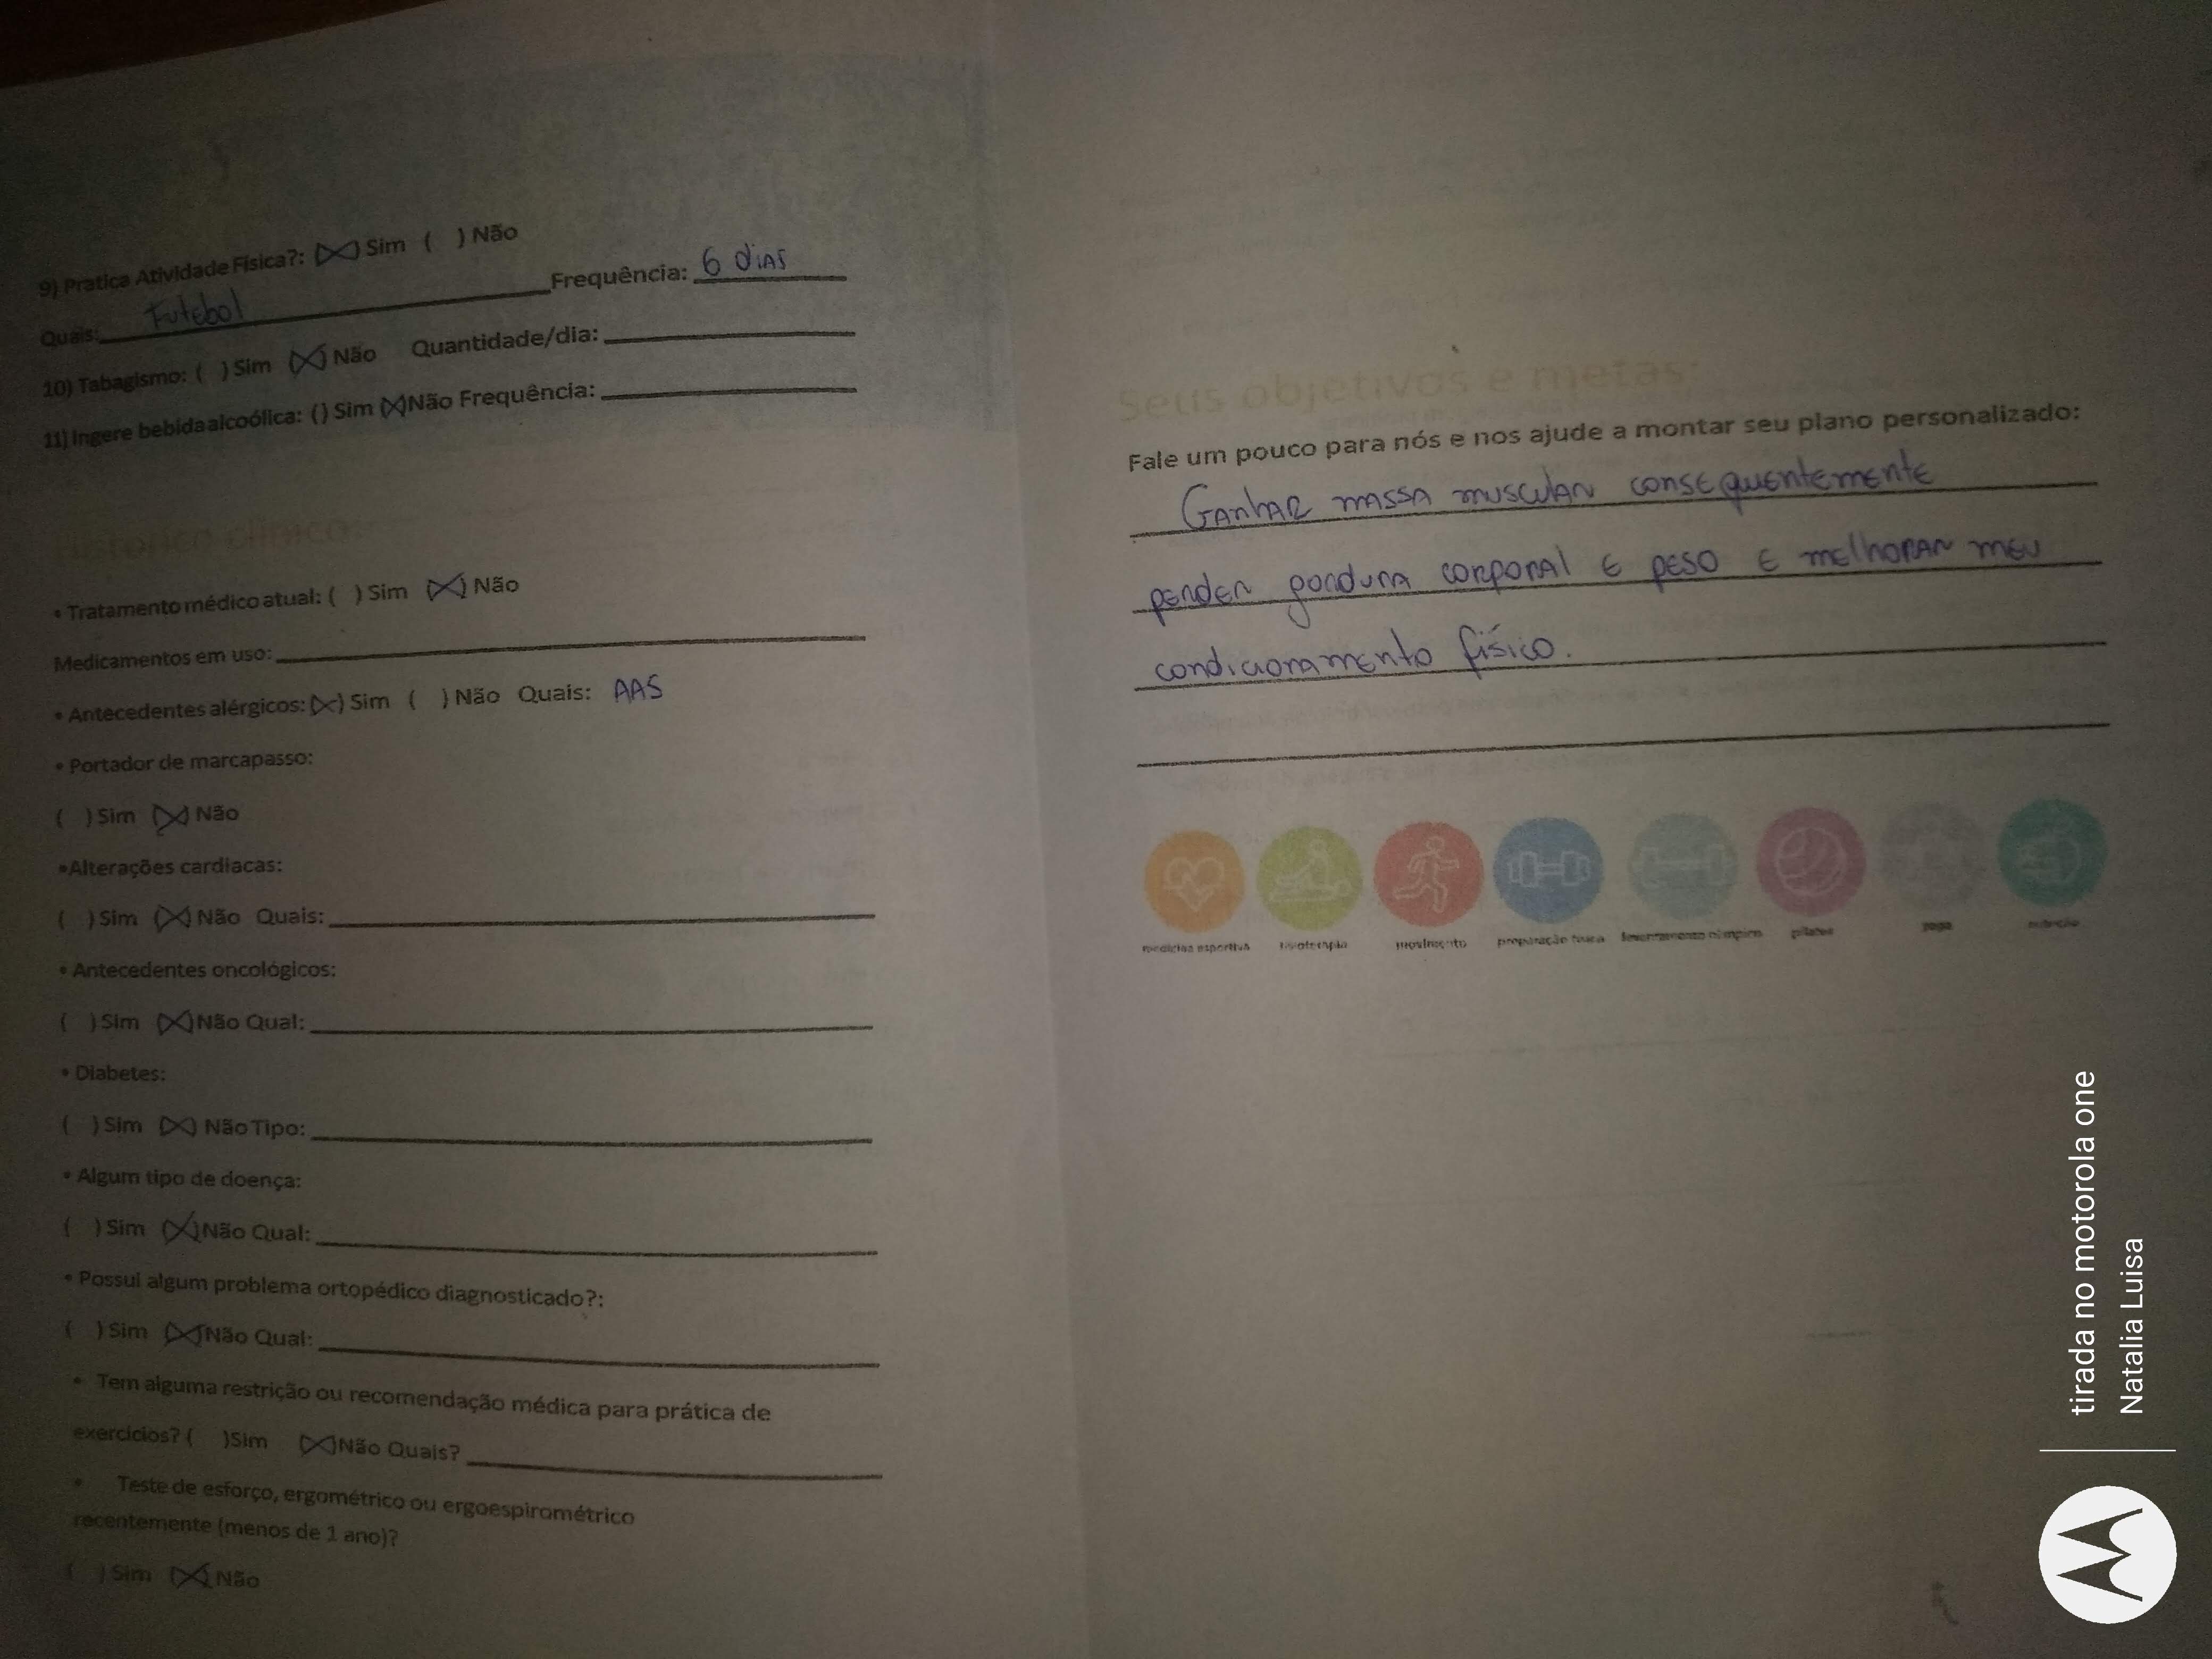 9) Pratica Atividade Física?: (X) Sim ( ) Não
Quais: Futebol Frequência: 6 dias
10) Tabagismo: ( ) Sim (X) Não Quantidade/dia:
11) Ingere bebida alcoólica: () Sim (X) Não Frequência:
• Tratamento médico atual: ( ) Sim (X) Não
Medicamentos em uso:
• Antecedentes alérgicos: (X) Sim ( ) Não Quais: AAS
• Portador de marcapasso:
( ) Sim (X) Não
• Alterações cardíacas:
( ) Sim (X) Não Quais:
• Antecedentes oncológicos:
( ) Sim (X) Não Qual:
• Diabetes:
( ) Sim (X) Não Tipo:
• Algum tipo de doença:
( ) Sim (X) Não Qual:
• Possui algum problema ortopédico diagnosticado?:
( ) Sim (X) Não Qual:
• Tem alguma restrição ou recomendação médica para prática de
exercícios? ( ) Sim (X) Não Quais?
• Teste de esforço, ergométrico ou ergoespirométrico
recentemente (menos de 1 ano)?
( ) Sim (X) Não
Seus objetivos e metas:
Fale um pouco para nós e nos ajude a montar seu plano personalizado:
Ganhar massa muscular consequentemente
perder gordura corporal e peso e melhorar meu
condicionamento físico.
medicina esportiva fisioterapia preparação física pilates yoga nutrição
tirada no motorola one
Natalia Luisa